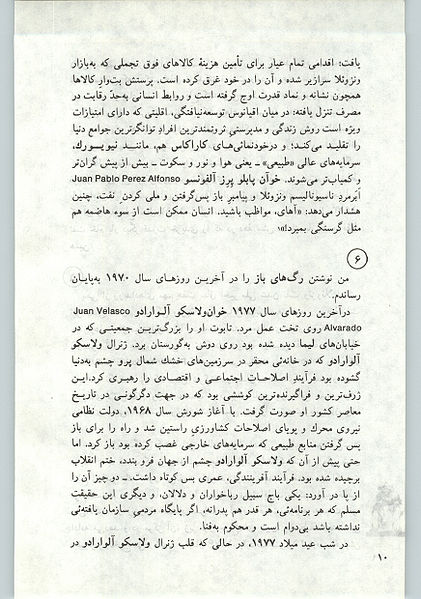 یافت: اقدامی تمام عیار برای تأمین هزینهٔ کالاهای فوق تجملی که به‌بازار
ونزوئلا سرازیر شده و آن را در خود غرق کرده است. پرستش بت‌وار کالاها
همچون نشانه و نماد قدرت اوج گرفته است و روابط انسانی به‌حدّ رقابت در
مصرف تنزل یافته: در میان اقیانوس توسعه‌نیافتگی، اقلیتی که دارای امتیازات
ویژه است روش زندگی و مدپرستی ثروتمندترین افرادِ توانگرترین جوامع دنیا
را تقلید می‌کند؛ و درخودنمائی‌های کاراکاس هم، ماننـد نیویـورك،
سرمایه‌های عالی «طبیعی» ـ یعنی هوا و نور و سکوت ـ بیش از پیش گران‌تر
و کمیاب‌تر می‌شوند. خوآن پابلو پِرِز آلفونسو Juan Pablo Perez Alfonso
اَبَرمردِ ناسیونالیسم ونزوئلا و پیامبر باز پس‌گرفتن و ملی کردن نفت، چنین
هشدار می‌دهد: «آهای، مواظب باشید. انسان ممکن است از سوء هاضمه هم
مثل گرسنگی بمیرد!»؛
۶
من نوشتن رگ‌های باز را در آخـریـن روزهـای سال ۱۹۷۰ به‌پایـان
رساندم.
درآخرین روزهای سال ۱۹۷۷ خوان‌ولاسکو آلـوارادو Juan Velasco
Alvarado روی تخت عمل مرد. تابوت او را بزرگ‌ترین جمعیتی که در
خیابان‌های لیما دیده شده بود روی دوش به‌گورستان برد. ژنرال ولاسکو
آلوارادو که در خانه‌ئی محقر در سرزمین‌های خشك شمال پرو چشم به‌دنیا
گشوده بود فرآیندِ اصلاحـات اجتماعـی و اقتصادی را رهبری کرد.ایـن
ژرف‌ترین و فراگیرنده‌ترین کوششی بود که در جهت دگرگونی در تاریخ
معاصر کشور او صورت گرفت. با آغاز شورش سال ۱۹۶۸، دولت نظامی
نیروی محرك و پویای اصلاحات کشاورزیِ راستین شد و راه را برای باز
پس گرفتن منابع طبیعی که سرمایه‌های خارجی غصب کرده بود باز کرد. اما
حتی پیش از آن که ولاسکو آلوارادو چشم از جهان فرو بندد، ختم انقلاب
برچیده شده بود. فرآیند آفرینندگی، عمری بس کوتاه داشت. ـ دو چیز آن را
از پا در آورد: یکی باج سبیل رباخواران و دلالان، و دیگری این حقیقت
مسلم که هر برنامه‌ئی، هر قدر هم پدرانه، اگر پایگاه مردمیِ سازمان یافته‌ئی
نداشته باشد بی‌دوام است و محکوم به‌فنا.
در شب عید میلاد ۱۹۷۷، در حالی که قلب ژنرال ولاسکو آلوارادو در
۱۰